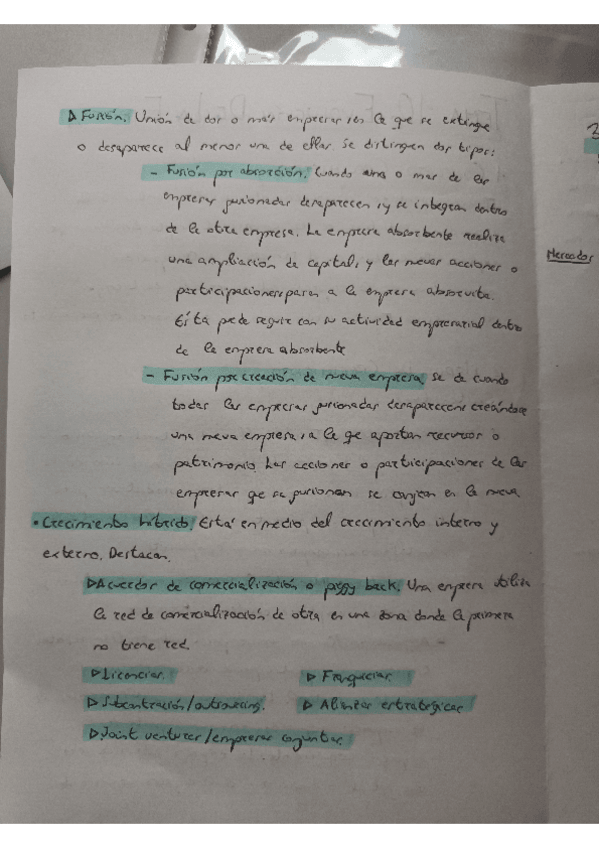 ▷ Fusión. Unión de dos o más empresas, en la que se extingue
o desaparece al menos una de ellas. Se distinguen dos tipos:
- Fusión por absorción. Cuando una o mas de las
empresas fusionadas desaparecen, y se integran dentro
de la otra empresa. La empresa absorbente realiza
una ampliación de capital, y las nuevas acciones o
participaciones pasan a la empresa absorvida.
Ésta puede seguir con su actividad empresarial dentro
de la empresa absorbente
- Fusión por creación de nueva empresa. Se da cuando
todas las empresas fusionadas desaparecen, creándose
una nueva empresa, a la que aportan recursos o
patrimonio. Las acciones o participaciones de las
empresas que se fusionan se canjean en la nueva
• Crecimiento híbrido. Está en medio del crecimiento interno y
externo. Destacan.
▷ Acuerdos de comercialización o piggy back. Una empresa utiliza
la red de comercialización de otra en una zona donde la primera
no tiene red.
▷ Licencias.
▷ Franquicias
▷ Subcontración/outsourcing.
▷ Alianzas estratégicas
▷ Joint ventures/empresas conjuntas.
3
Mercados